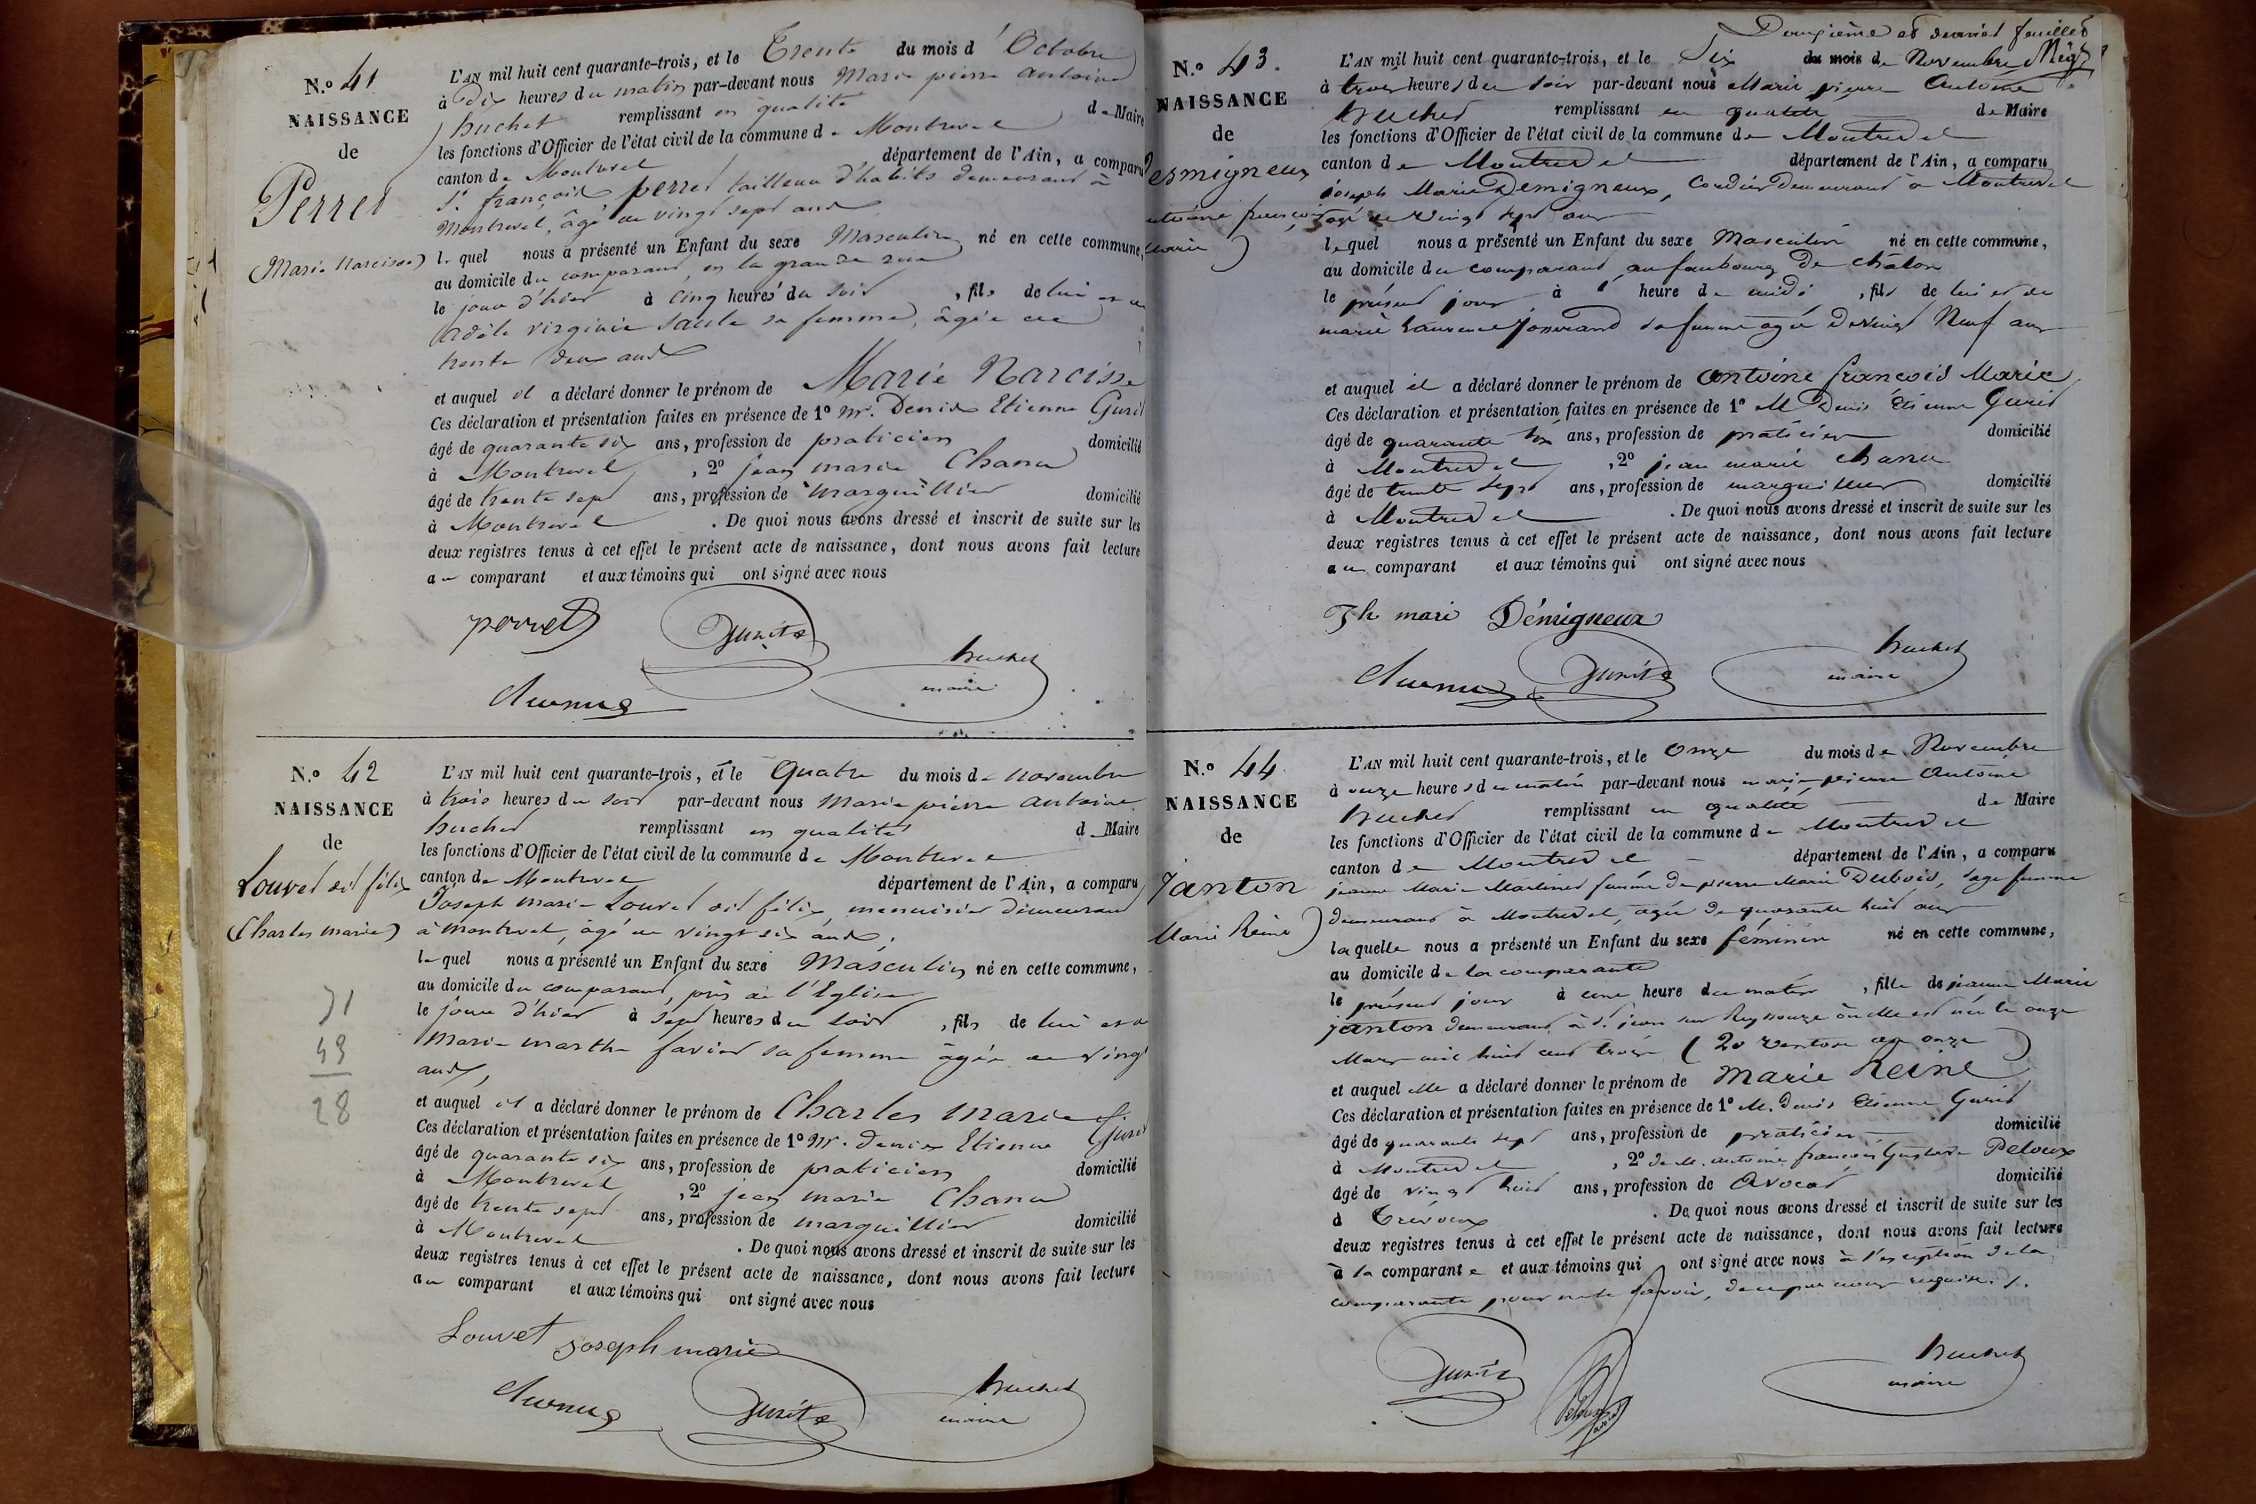 N.o 41
NAISSANCE
de
Perret
(Marie Narcisse)
L'AN mil huit cent quarante-trois, et le Trente du mois d'Octobre
à Dix heures du matin par-devant nous Marie pierre Antoine
huchet remplissant en qualité de Maire
les fonctions d'Officier de l'état civil de la commune de Montrevel
canton de Montrevel département de l'Ain, a comparu
Sr. françois perret tailleur d'habits demeurant à
Montrevel, âgé de vingt sept ans
lequel nous a présenté un Enfant du sexe Masculin né en cette commune,
au domicile du comparant, en la grande rue
le jour d'hier à cinq heures du soir, fils de lui et de
Adèle virginie saule sa femme, âgée de
trente deux ans
et auquel il a déclaré donner le prénom de Marie Narcisse
Ces déclaration et présentation faites en présence de 1o Mr. Denis Etienne Gurit
âgé de quarante six ans, profession de praticien domicilié
à Montrevel, 2o jean marie Chanu
âgé de trente sept ans, profession de marguillier domicilié
à Montrevel. De quoi nous avons dressé et inscrit de suite sur les
deux registres tenus à cet effet le présent acte de naissance, dont nous avons fait lecture
au comparant et aux témoins qui ont signé avec nous
perret
Gurit
huchet
maire
Chanu
N.o 42
NAISSANCE
de
Louvet dit félix
(Charles marie)
71
43
28
L'AN mil huit cent quarante-trois, et le Quatre du mois de novembre
à trois heures du soir par-devant nous Marie pierre antoine
huchet remplissant en qualité de Maire
les fonctions d'Officier de l'état civil de la commune de Montrevel
canton de Montrevel département de l'Ain, a comparu
Joseph marie Louvet dit félix, menuisier demeurant
à montrevel, âgé de vingt six ans,
lequel nous a présenté un Enfant du sexe Masculin né en cette commune,
au domicile du comparant, près de l'Eglise
le jour d'hier à sept heures du soir, fils de lui et de
Marie marthe favier sa femme âgée de vingt
ans,
et auquel il a déclaré donner le prénom de Charles marie
Ces déclaration et présentation faites en présence de 1o Mr. denis Etienne Gurit
âgé de quarante six ans, profession de praticien domicilié
à Montrevel, 2o jean marie Chanu
âgé de trente sept ans, profession de marguillier domicilié
à Montrevel. De quoi nous avons dressé et inscrit de suite sur les
deux registres tenus à cet effet le présent acte de naissance, dont nous avons fait lecture
au comparant et aux témoins qui ont signé avec nous
Louvet joseph marie
Chanu
Gurit
huchet
maire
et dernier feuillet
N.o 43.
NAISSANCE
de
Desmigneux
antoine françois
Marie)
L'AN mil huit cent quarante-trois, et le Six du mois de Novembre
à trois heures du soir par-devant nous Marie pierre Antoine
huchet remplissant en qualité de Maire
les fonctions d'Officier de l'état civil de la commune de Montrevel
canton de Montrevel département de l'Ain, a comparu
joseph Marie Demigneux, Cordier demeurant à Montrevel
âgé de vingt sept ans
lequel nous a présenté un Enfant du sexe Masculin né en cette commune,
au domicile du comparant au faubourg de châlon
le présent jour à l' heure de midi, fils de lui et de
marie Laurence josserand sa femme agée de vingt Neuf ans
et auquel il a déclaré donner le prénom de antoine françois Marie
Ces déclaration et présentation faites en présence de 1o M Denis Etienne Gurit
âgé de quarante six ans, profession de praticien domicilié
à Montrevel, 2o jean marie chanu
âgé de trente sept ans, profession de marguillier domicilié
à Montrevel. De quoi nous avons dressé et inscrit de suite sur les
deux registres tenus à cet effet le présent acte de naissance, dont nous avons fait lecture
au comparant et aux témoins qui ont signé avec nous
Jh mari Démigneux
Chanu
Gurit
huchet
maire
N.o 44.
NAISSANCE
de
janton
Marie Reine)
L'AN mil huit cent quarante-trois, et le onze du mois de Novembre
à onze heures du matin par-devant nous marie pierre Antoine
huchet remplissant en qualité de Maire
les fonctions d'Officier de l'état civil de la commune de Montrevel
canton de Montrevel département de l'Ain, a comparu
jeanne Marie Martinet femme de pierre Marie Dubois, sage femme
demeurant à Montrevel, agée de quarante huit ans
laquelle nous a présenté un Enfant du sexe féminin né en cette commune,
au domicile de la comparante
le présent jour à une heure du matin, fille de jeanne Marie
janton demeurant à St. jean sur Reyssouze où elle est née le onze
Mars mil huit cent trois (20 ventose an onze)
et auquel elle a déclaré donner le prénom de Marie Reine
Ces déclaration et présentation faites en présence de 1o M. denis Etienne Gurit
âgé de quarante sept ans, profession de praticien domicilié
à Montrevel, 2o de M. antoine françois Gustave Peloux
âgé de vingt huit ans, profession de Avocat domicilié
à Trévoux. De quoi nous avons dressé et inscrit de suite sur les
deux registres tenus à cet effet le présent acte de naissance, dont nous avons fait lecture
à la comparante et aux témoins qui ont signé avec nous à l'exception de la
comparante pour ne le savoir, de ce par nous requise ./.
Gurit
Peloux
huchet
maire